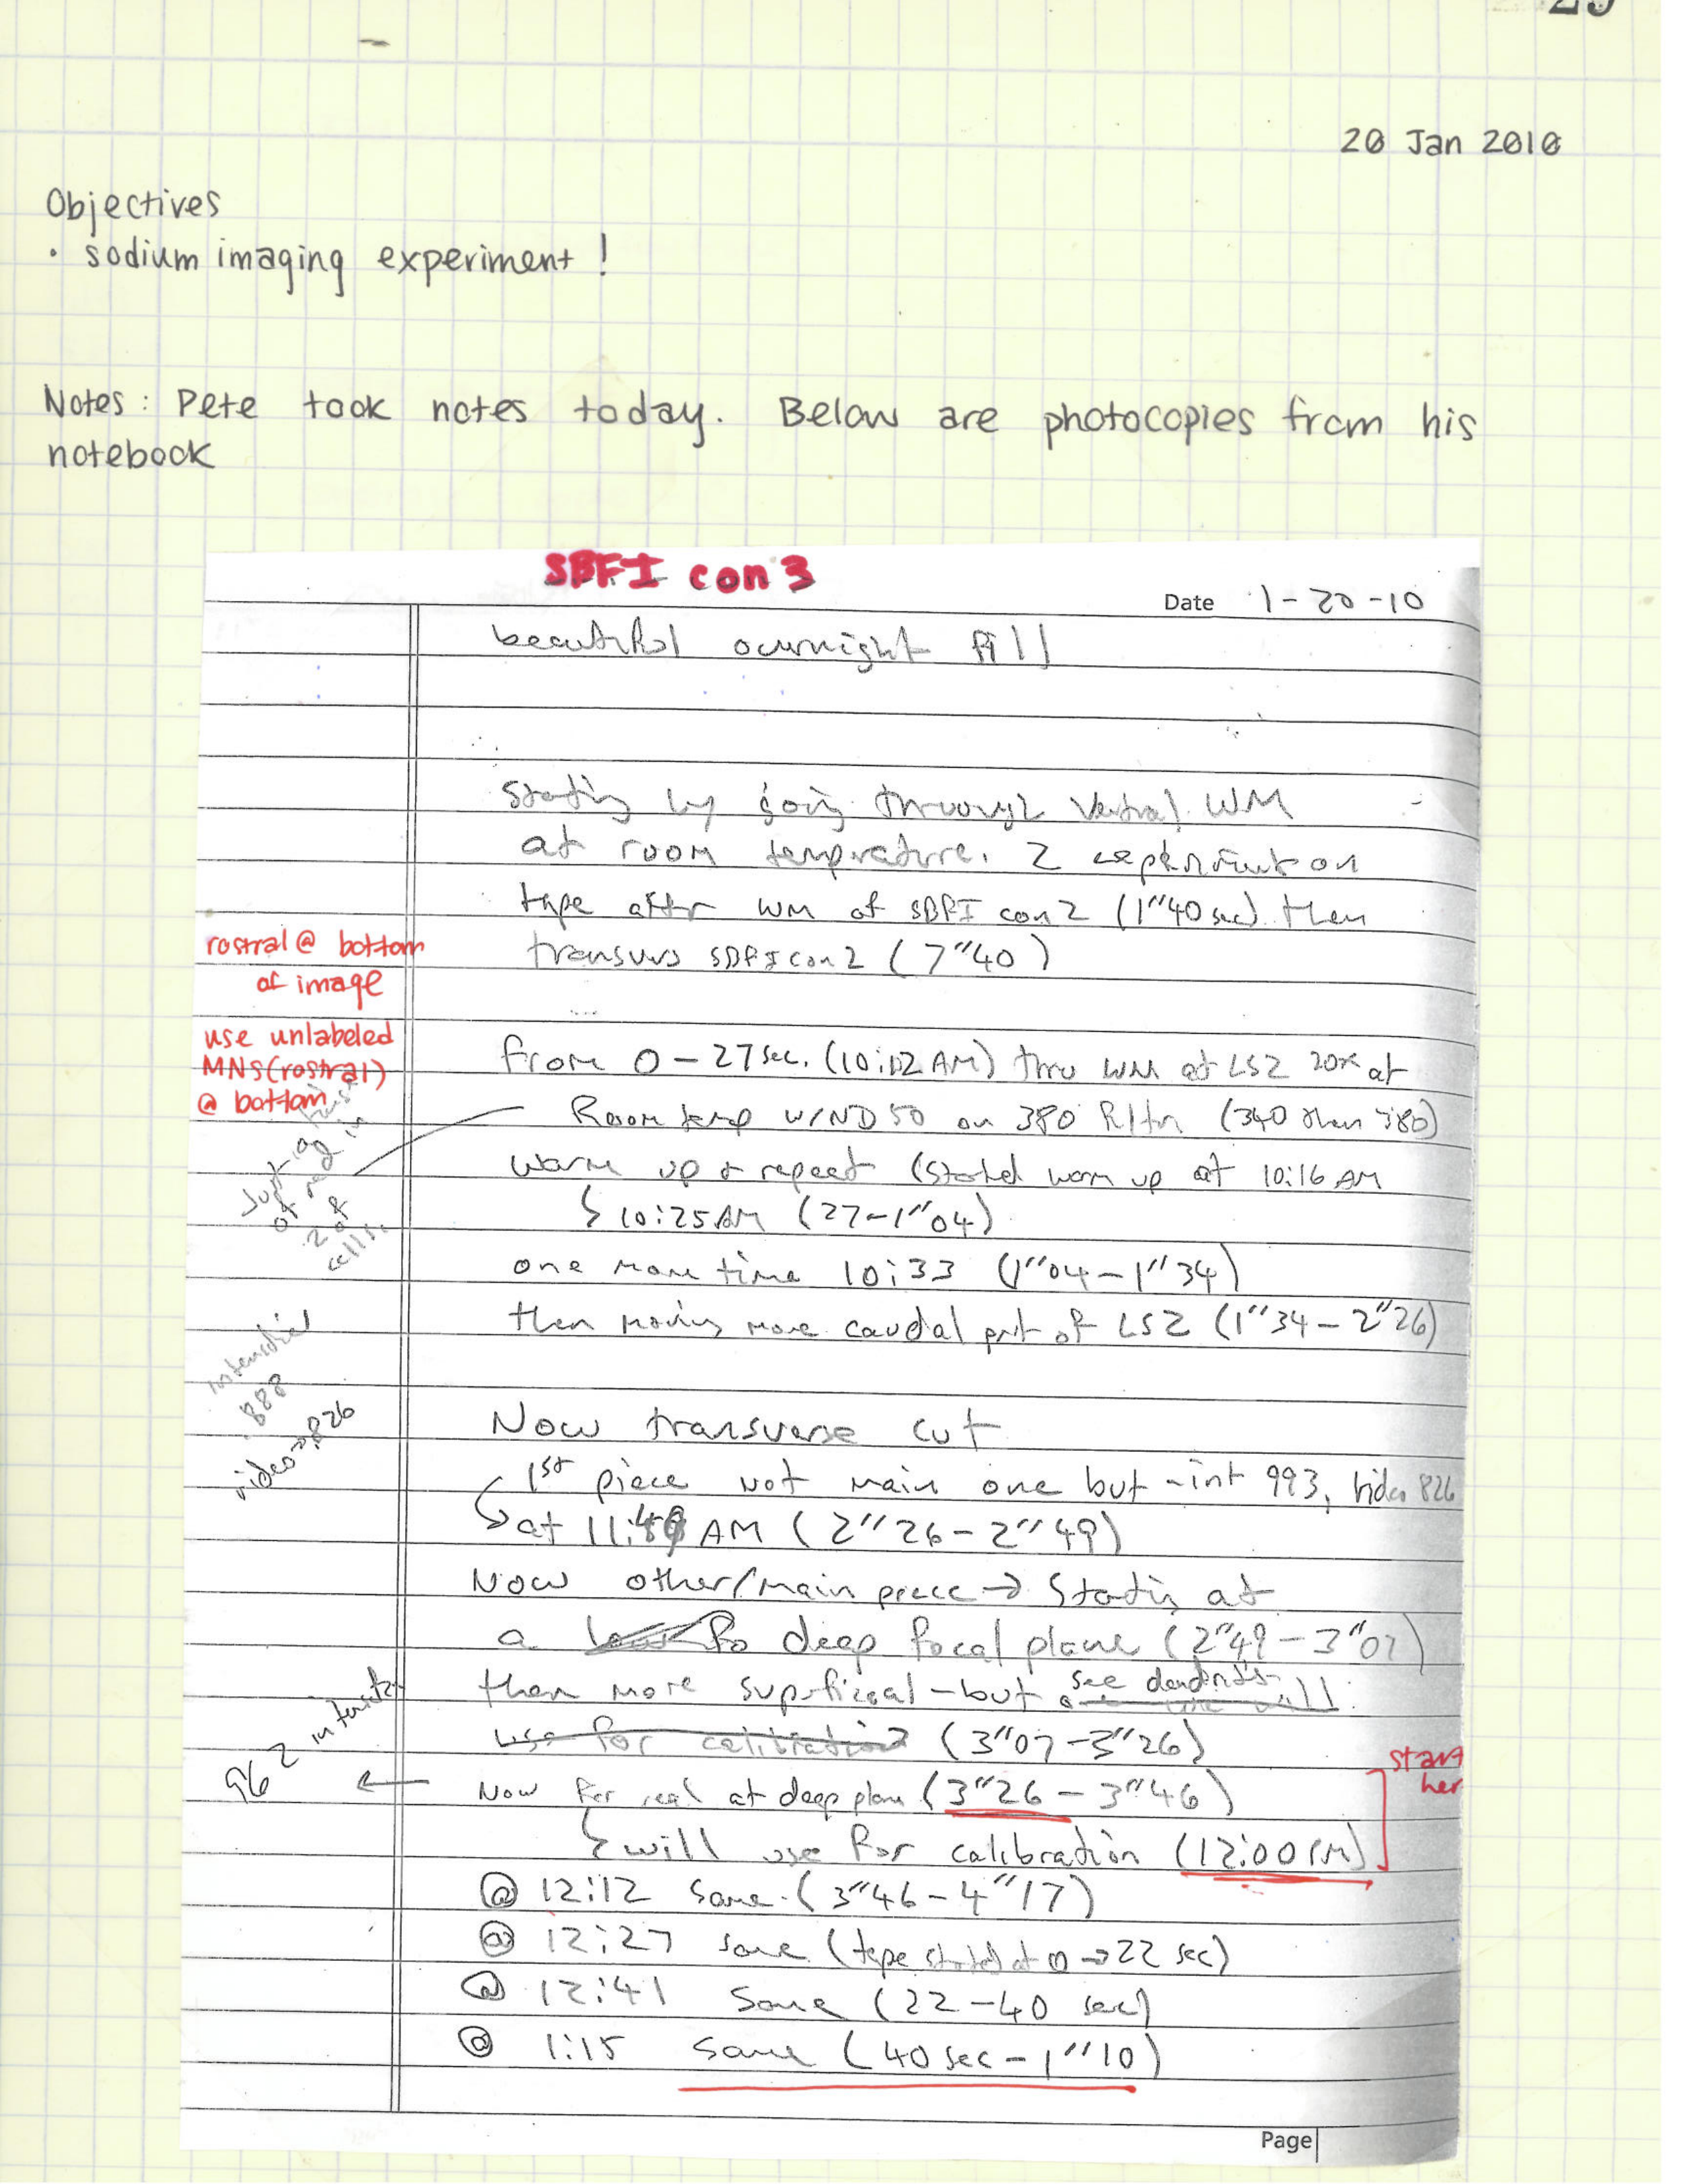 20 Jan 2010
Objectives
· sodium imaging experiment !
Notes: Pete took notes today. Below are photocopies from his
notebook
SBFI con 3
Date 1-20-10
beautiful overnight fill
Starting by going through Ventral WM
at room temprature. 2 on
tape after WM of SBFI con 2 (1"40 sec) then
transvers SBFI con 2 (7"40)
rostral @ bottom
of image
use unlabeled
MNs (rostral)
@ bottom
From 0-27 sec. (10:12 AM) thru WM at LS2 20x at
Room temp w/ND50 on 380 filtr (340 then 380)
Warm up & repeat (Started warm up at 10:16 AM
10:25 AM (27-1"04)
one more time 10:33 (1"04-1"34)
then moving more caudal part of LS2 (1"34-2"26)
Just at
of red in
2 of
cells
888
video → 826
Now transverse cut
1st piece not main one but - int 993, video 826
at 11:48 AM (2"26-2"49)
Now other/main piece → Starting at
a deep focal plane (2"49-3"07)
then more superficial - but see dendrites
use for calibration (3"07-3"26)
962 intensity
← Now for real at deep plane (3"26-3"46)
start
her
will use for calibration (12:00 PM)
@ 12:12 Same (3"46-4"17)
@ 12:27 same (tape started at 0 → 22 sec)
@ 12:41 Same (22-40 sec)
@ 1:15 same (40 sec-1"10)
Page